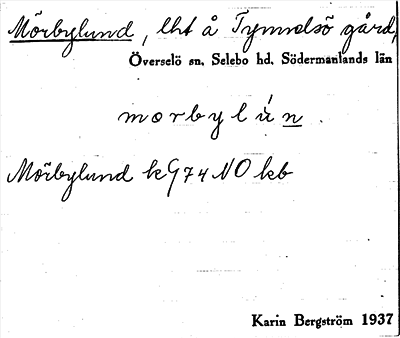 Mörbylund, lht å Tynnelsö gård,
Överselö sn. Selebo hd. Södermanlands län
mɶrbylún.
Mörbylund kG74NO kb
Karin Bergström 1937